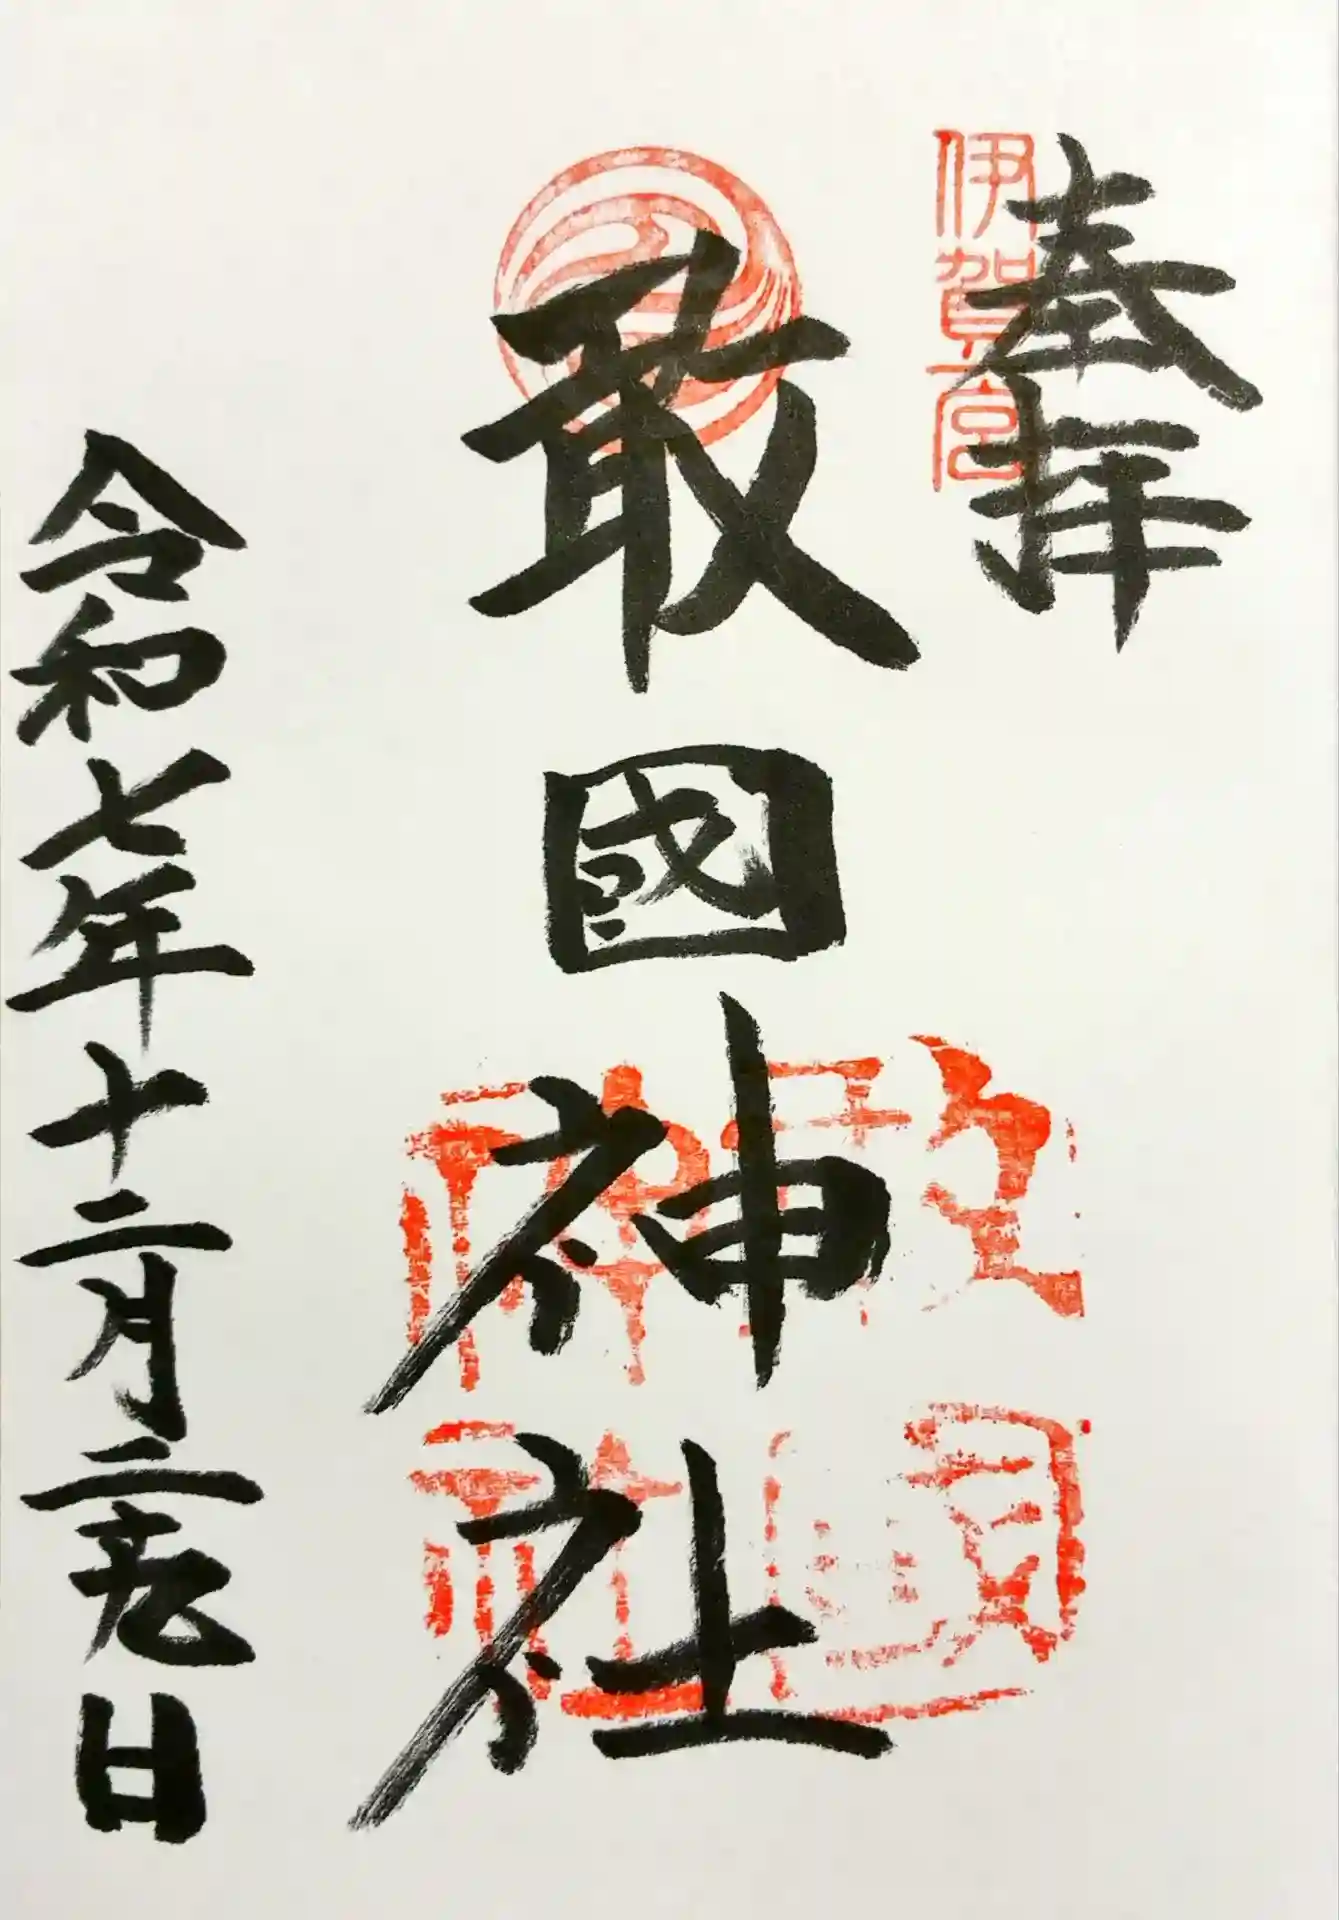 奉拝
伊賀一宮
敢國神社
敢國
神社
令和七年十二月二十九日